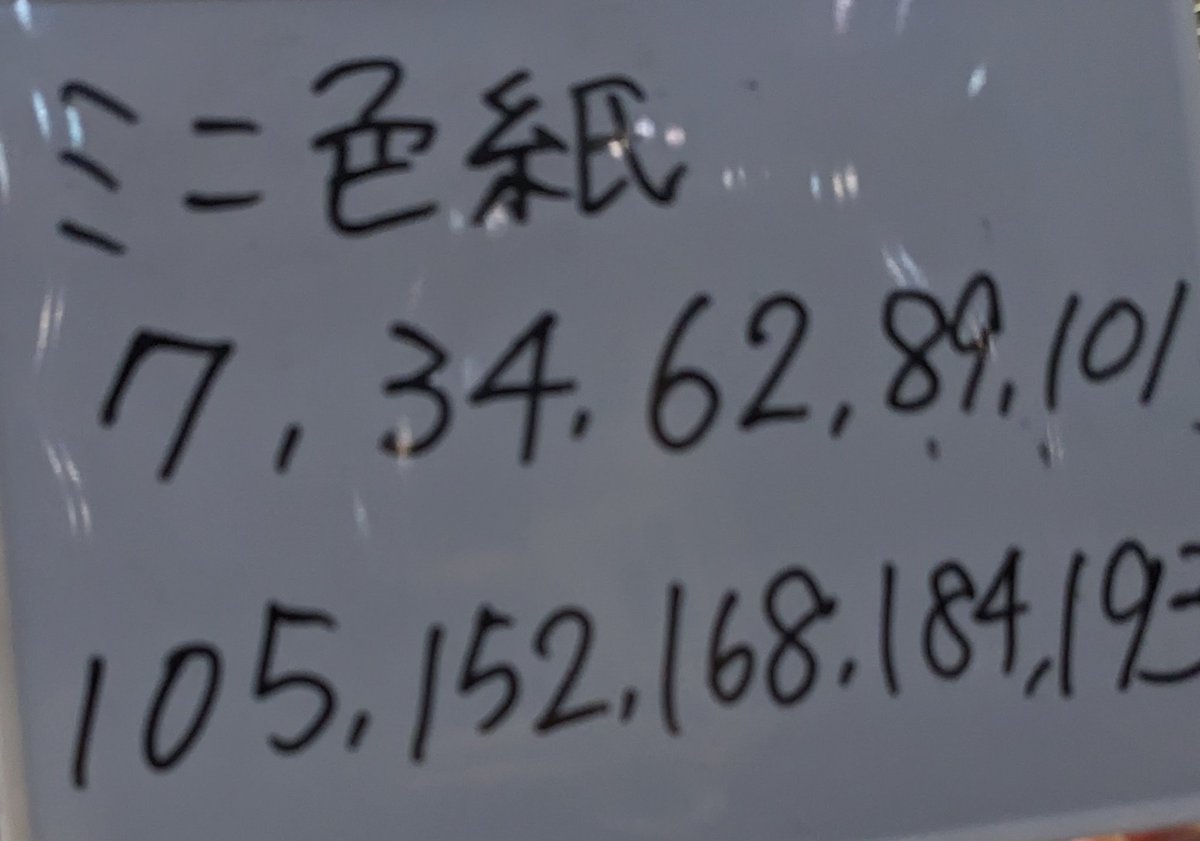 ミニ色紙
7, 34, 62, 89, 101
105, 152, 168, 184, 193